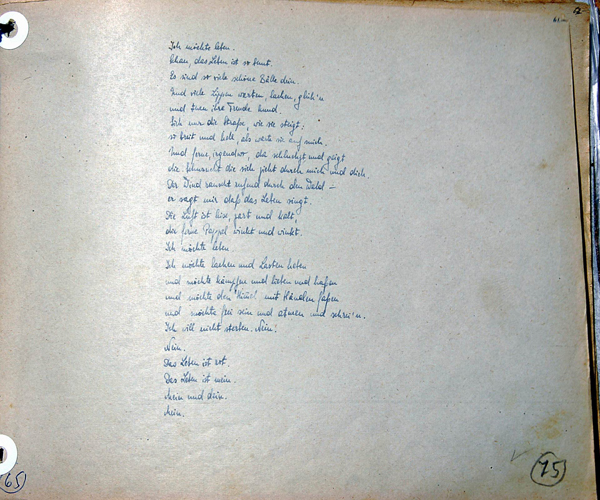 Ich möchte leben.
Schau, das Leben ist so bunt.
Es sind so viele schöne Bälle drin.
Und viele Lippen warten, lachen, glüh'n
und tuen ihre Freude kund.
Sieh nur die Straße, wie sie steigt:
so breit und hell, als warte sie auf mich.
Und ferne, irgendwo, da schluchzt und geigt
die Sehnsucht die sich zieht durch mich und dich.
Der Wind rauscht rufend durch den Wald –
er sagt mir daß das Leben singt.
Die Luft ist leise, zart und kalt,
die ferne Pappel winkt und winkt.
Ich möchte leben.
Ich möchte lachen und Lasten heben
und möchte kämpfen und lieben und hassen
und möchte den Himmel mit Händen fassen
und möchte frei sein und atmen und schrei'n.
Ich will nicht sterben. Nein!
Nein.
Das Leben ist rot.
Das Leben ist mein.
Mein und dein.
Mein.
75
65